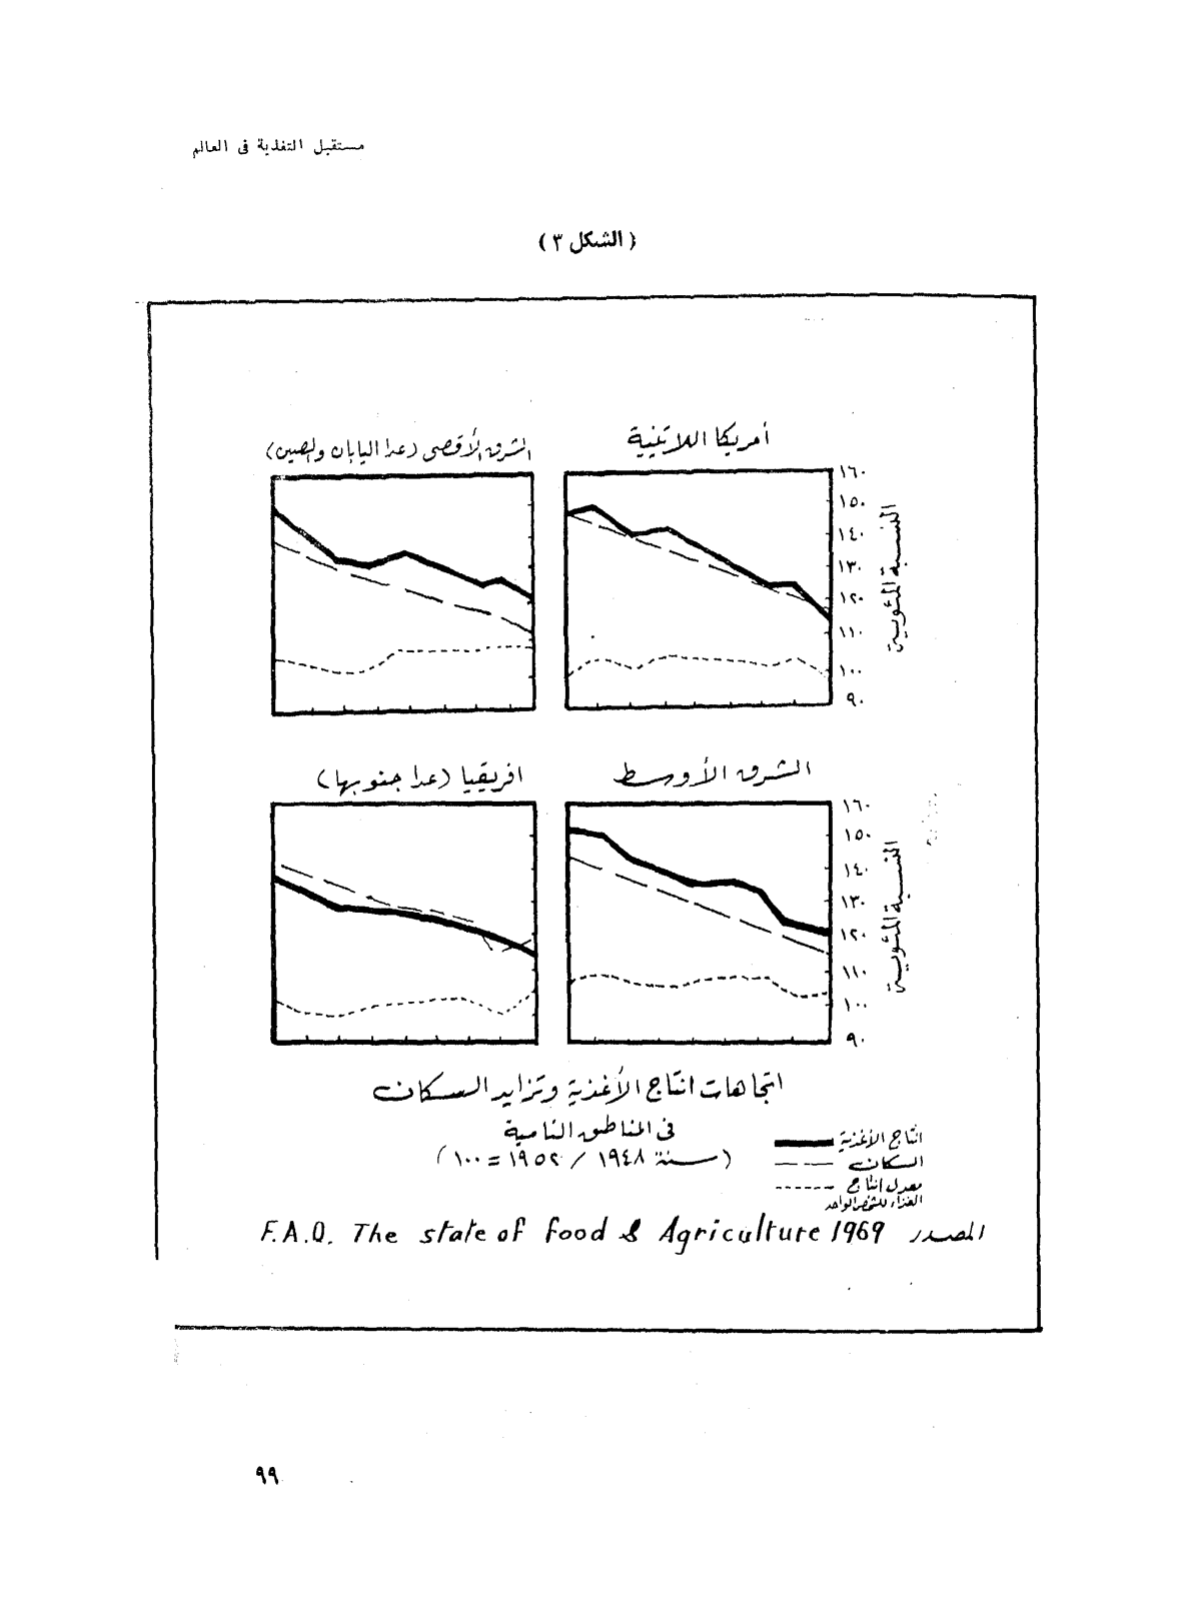 مستقبل التغذية فى العالم
( الشكل ٣ )
أمريكا اللاتينية
الشرق الأقصى (عدا اليابان والصين)
١٦٠
١٥٠
١٤٠
١٣٠
١٢٠
١١٠
١٠٠
٩٠
النسبة المئوية
الشرق الأوسط
افريقيا (عدا جنوبها)
١٦٠
١٥٠
١٤٠
١٣٠
١٢٠
١١٠
١٠٠
٩٠
النسبة المئوية
اتجاهات انتاج الأغذية وتزايد السكان
فى المناطق النامية
(سنة ١٩٤٨ / ١٩٥٢ = ١٠٠)
انتاج الأغذية
السكان
معدل انتاج
الغذاء للشخص الواحد
المصدر F.A.O. The state of food & Agriculture 1969
٩٩